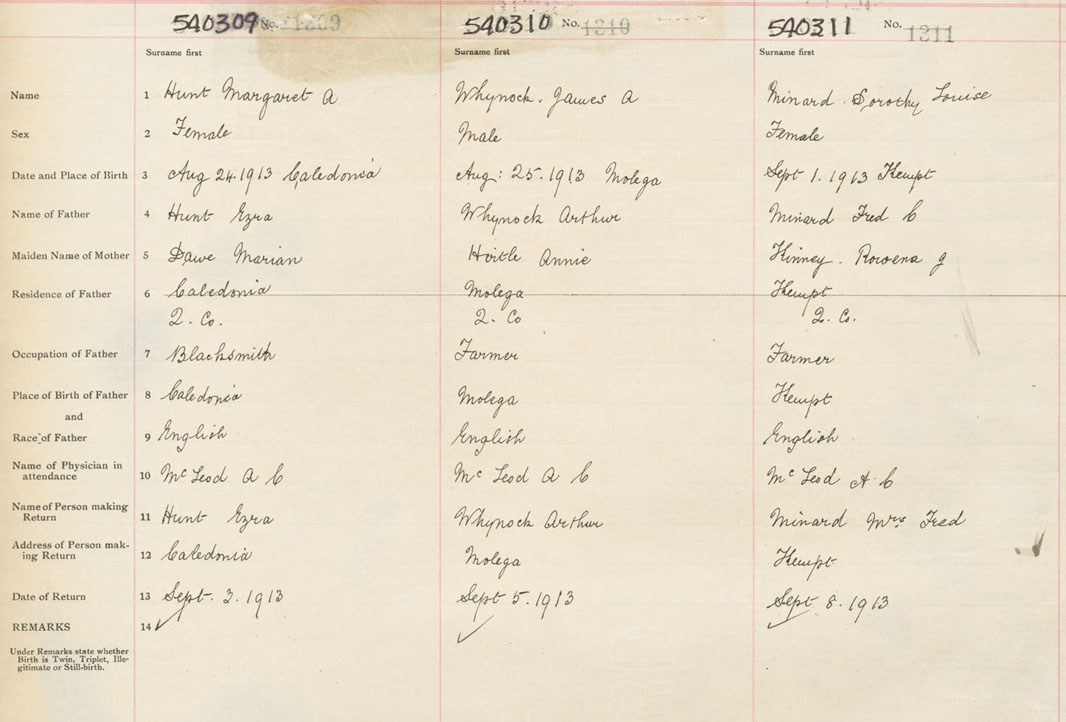 540309 No. 1309 540310 No. 1310 540311 No. 1311
Surname first Surname first Surname first
Name 1 Hunt Margaret A Whynock. James A Minard. Dorothy Louise
Sex 2 Female Male Female
Date and Place of Birth 3 Aug 24.1913 Caledonia Aug: 25.1913 Molega Sept 1.1913 Kempt
Name of Father 4 Hunt Ezra Whynock Arthur Minard Fred C
Maiden Name of Mother 5 Dawe Marian Hirtle Annie Kinney. Rowena J
Residence of Father 6 Caledonia Molega Kempt
Q. Co. Q. Co Q. Co.
Occupation of Father 7 Blacksmith Farmer Farmer
Place of Birth of Father 8 Caledonia Molega Kempt
and
Race of Father 9 English English English
Name of Physician in
attendance 10 McLeod A C McLeod A C McLeod A C
Name of Person making
Return 11 Hunt Ezra Whynock Arthur Minard Mrs Fred
Address of Person mak-
ing Return 12 Caledonia Molega Kempt
Date of Return 13 Sept. 3.1913 Sept 5.1913 Sept 8.1913
REMARKS 14 ✓ ✓ ✓
Under Remarks state whether
Birth is Twin, Triplet, Ille-
gitimate or Still-birth.